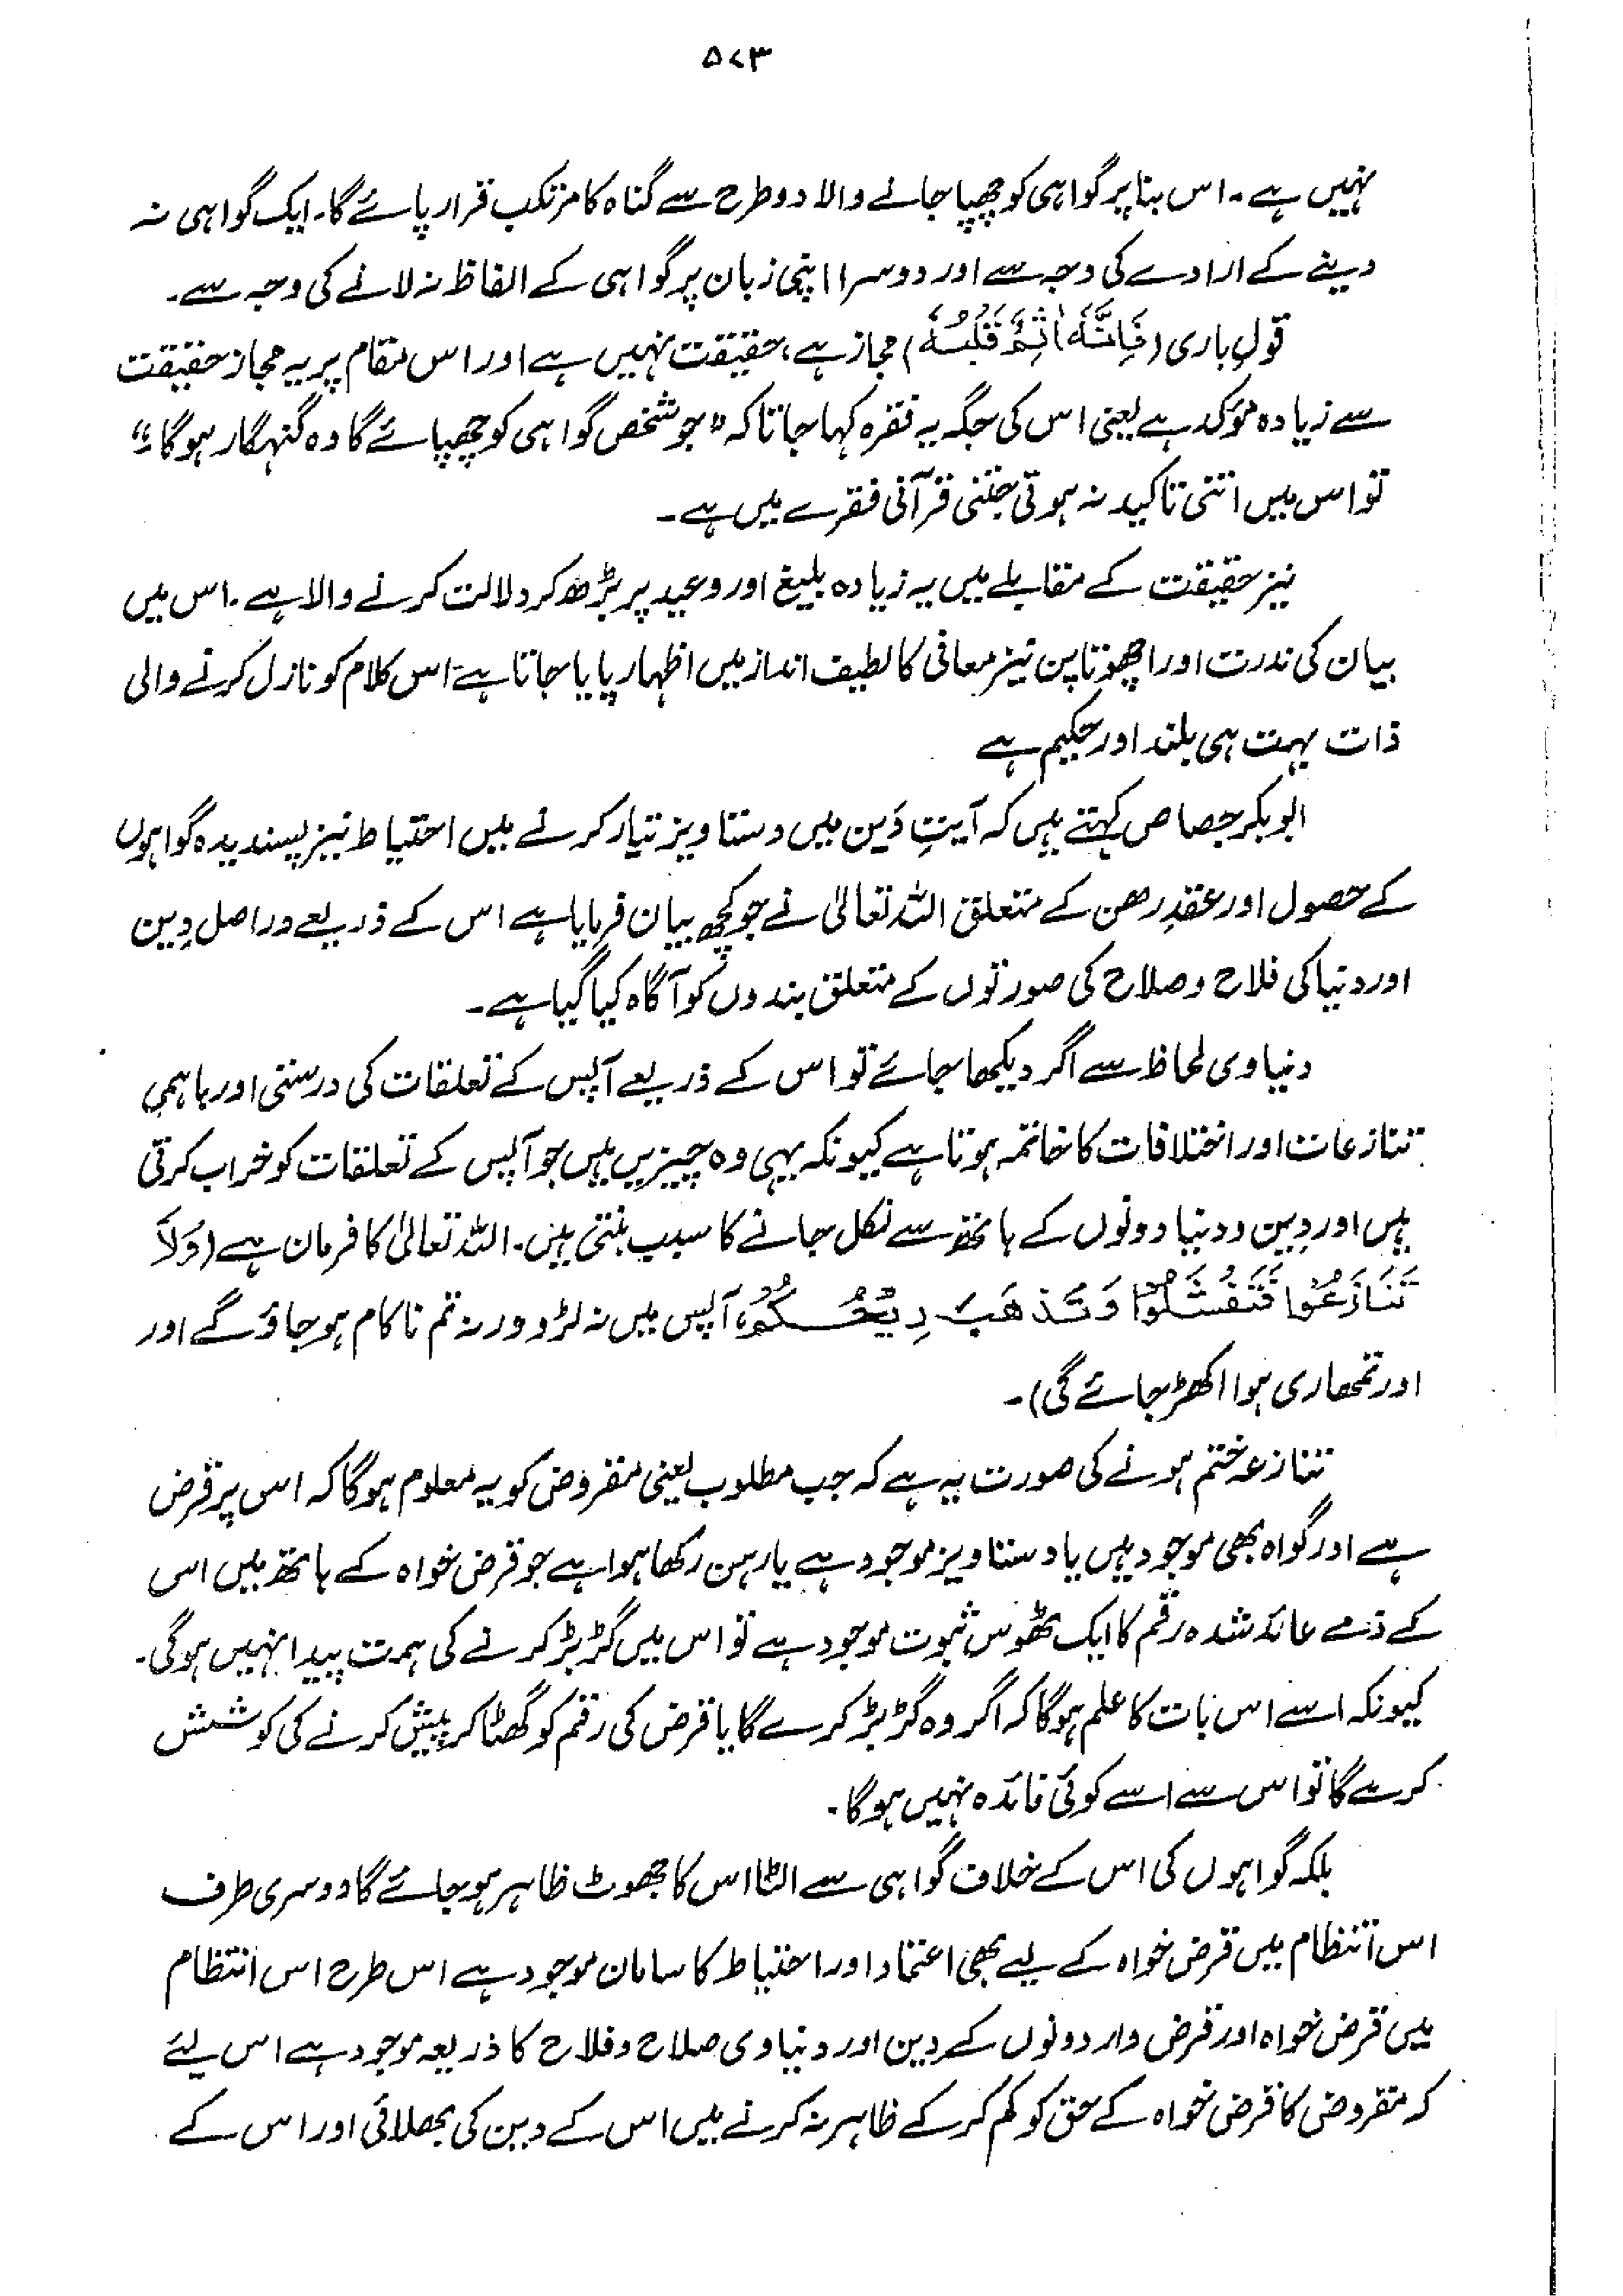 ۵۷۳
نہیں ہے۔ اس بنا پر گواہی کو چھپا جانے والا دو طرح سے گناہ کا مرتکب قرار پائے گا۔ ایک گواہی نہ
دینے کے ارادے کی وجہ سے اور دوسرا اپنی زبان پر گواہی کے الفاظ نہ لانے کی وجہ سے۔
قولِ باری (فَاِنَّهٗ اٰثِمٌ قَلْبُهٗ) مجاز ہے، حقیقت نہیں ہے اور اس مقام پر یہ مجاز حقیقت
سے زیادہ مؤکد ہے یعنی اس کی جگہ یہ فقرہ کہا جاتا کہ "جو شخص گواہی کو چھپائے گا وہ گنہگار ہوگا؛"
تو اس میں اتنی تاکید نہ ہوتی جتنی قرآنی فقرے میں ہے۔
نیز حقیقت کے مقابلے میں یہ زیادہ بلیغ اور وعید پر بڑھ کر دلالت کرنے والا ہے۔ اس میں
بیان کی ندرت اور اچھوتا پن نیز معانی کا لطیف انداز میں اظہار پایا جاتا ہے اس کلام کو نازل کرنے والی
ذات بہت ہی بلند اور حکیم ہے
ابوبکر جصاص کہتے ہیں کہ آیتِ دَین میں دستاویز تیار کرنے میں احتیاط نیز پسندیدہ گواہوں
کے حصول اور عقدِ رھن کے متعلق اللہ تعالیٰ نے جو کچھ بیان فرمایا ہے اس کے ذریعے دراصل دِین
اور دنیا کی فلاح و صلاح کی صورتوں کے متعلق بندوں کو آگاہ کیا گیا ہے۔
دنیاوی لحاظ سے اگر دیکھا جائے تو اس کے ذریعے آپس کے تعلقات کی درستی اور باہمی
تنازعات اور اختلافات کا خاتمہ ہوتا ہے کیونکہ یہی وہ چیزیں ہیں جو آپس کے تعلقات کو خراب کرتی
ہیں اور دِین و دنیا دونوں کے ہاتھ سے نکل جانے کا سبب بنتی ہیں۔ اللہ تعالیٰ کا فرمان ہے (وَلَا
تَنَازَعُوْا فَتَفْشَلُوْا وَتَذْهَبَ رِيْحُكُمْ، آپس میں نہ لڑو ورنہ تم ناکام ہو جاؤ گے اور
اور تمھاری ہوا اکھڑ جائے گی)۔
تنازعہ ختم ہونے کی صورت یہ ہے کہ جب مطلوب یعنی مقروض کو یہ معلوم ہوگا کہ اس پر قرض
ہے اور گواہ بھی موجود ہیں یا دستاویز موجود ہے یا رہن رکھا ہوا ہے جو قرض خواہ کے ہاتھ میں اس
کے ذمے عائد شدہ رقم کا ایک ٹھوس ثبوت موجود ہے تو اس میں گڑبڑ کرنے کی ہمت پیدا نہیں ہوگی۔
کیونکہ اسے اس بات کا علم ہوگا کہ اگر وہ گڑبڑ کرے گا یا قرض کی رقم کو گھٹا کر پیش کرنے کی کوشش
کرے گا تو اس سے اسے کوئی فائدہ نہیں ہوگا۔
بلکہ گواہوں کی اس کے خلاف گواہی سے الٹا اس کا جھوٹ ظاہر ہو جائے گا دوسری طرف
اس انتظام میں قرض خواہ کے لیے بھی اعتماد اور احتیاط کا سامان موجود ہے اس طرح اس انتظام
میں قرض خواہ اور قرض دار دونوں کے دین اور دنیاوی صلاح و فلاح کا ذریعہ موجود ہے اس لئے
کہ مقروض کا قرض خواہ کے حق کو کم کر کے ظاہر نہ کرنے میں اس کے دین کی بھلائی اور اس کے